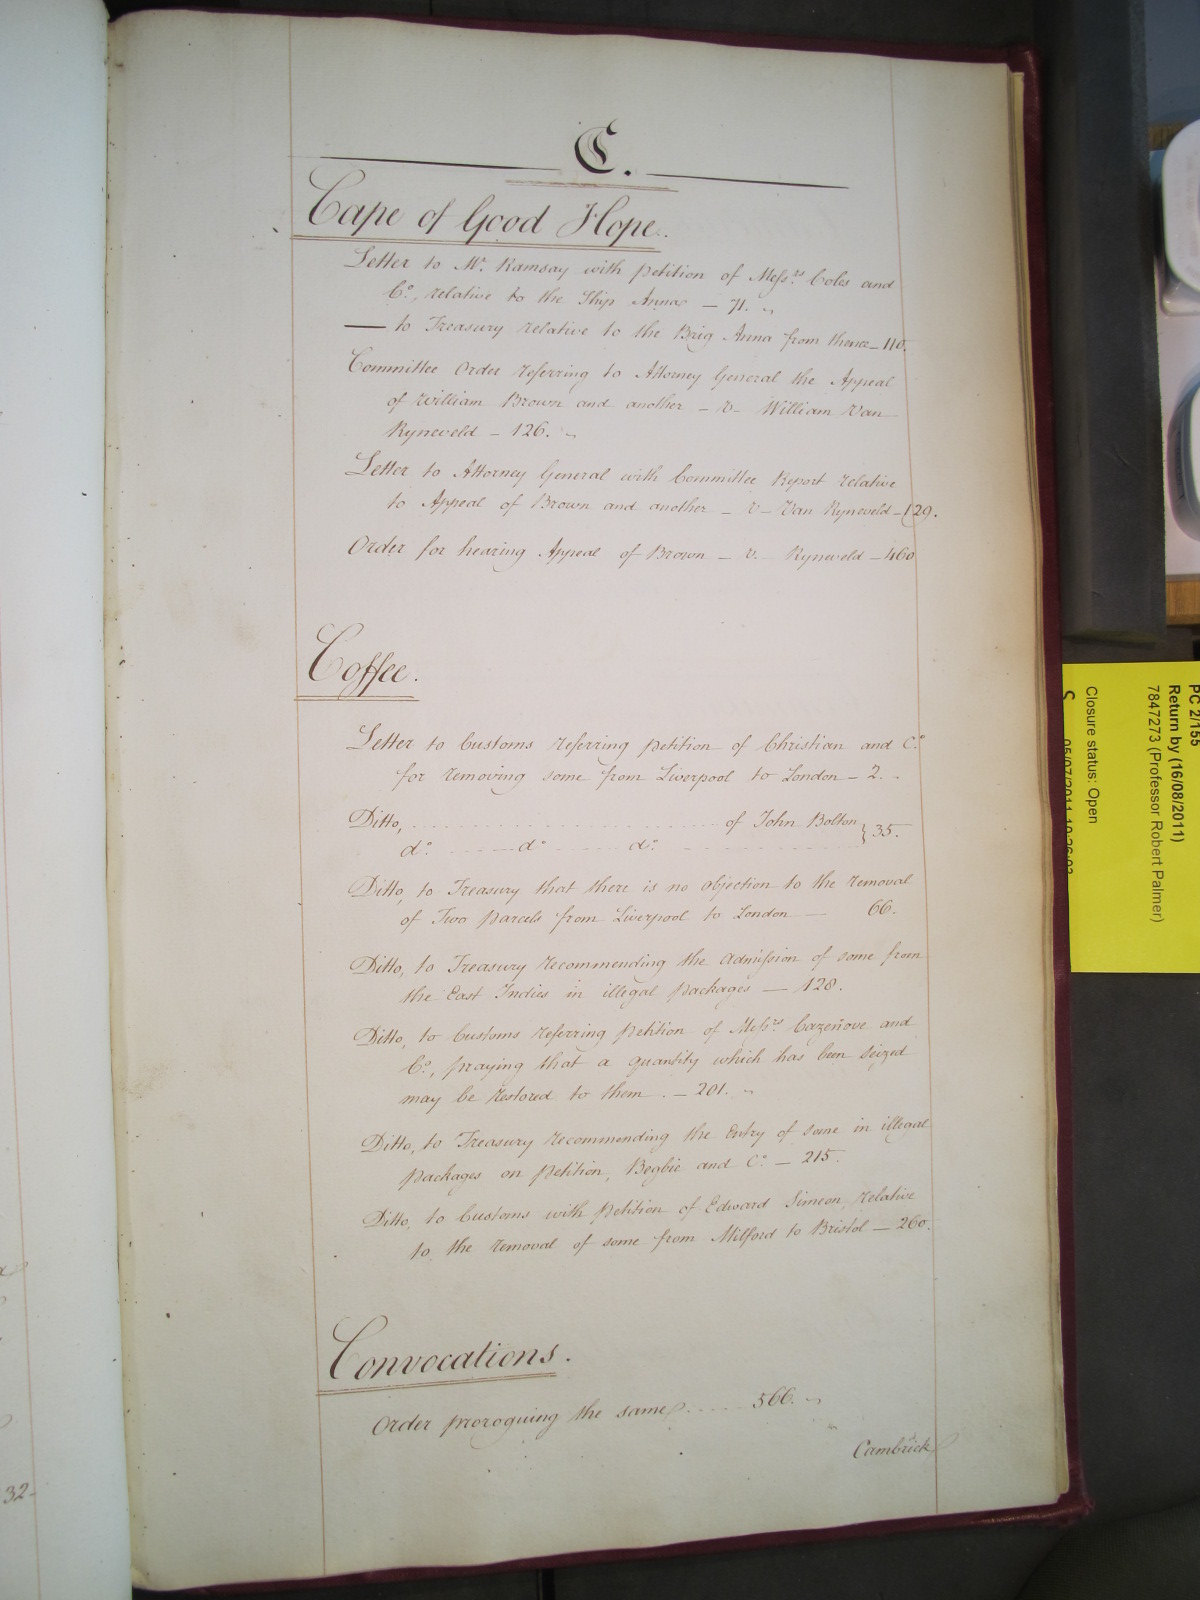 C.
Cape of Good Hope.
Letter to Mr. Ramsay with petition of Messrs. Coles and
Co., relative to the Ship Anna — 71.
— to Treasury relative to the Brig Anna from thence — 110.
Committee Order referring to Attorney General the Appeal
of William Brown and another — v — William Van
Ryneveld — 126.
Letter to Attorney General with Committee Report relative
to Appeal of Brown and another — v — Van Ryneveld — 129.
Order for hearing Appeal of Brown — v. Ryneveld — 460
Coffee.
Letter to Customs referring petition of Christian and Co.
for removing some from Liverpool to London — 2.
Ditto, of John Bolton } 35.
do. do. do.
Ditto, to Treasury that there is no objection to the removal
of Two parcels from Liverpool to London — 66.
Ditto, to Treasury recommending the admission of some from
the East Indies in illegal packages — 128.
Ditto, to Customs referring petition of Messrs. Cazenove and
Co., praying that a quantity which has been seized
may be restored to them. — 201.
Ditto, to Treasury recommending the Entry of some in illegal
packages on petition, Begbie and Co. — 215.
Ditto, to Customs with petition of Edward Simeon, relative
to the removal of some from Milford to Bristol — 260.
Convocations.
Order proroguing the same 566.
Cambrick
32-
PC 2/155
Return by (16/08/2011)
7847273 (Professor Robert Palmer)
Closure status: Open